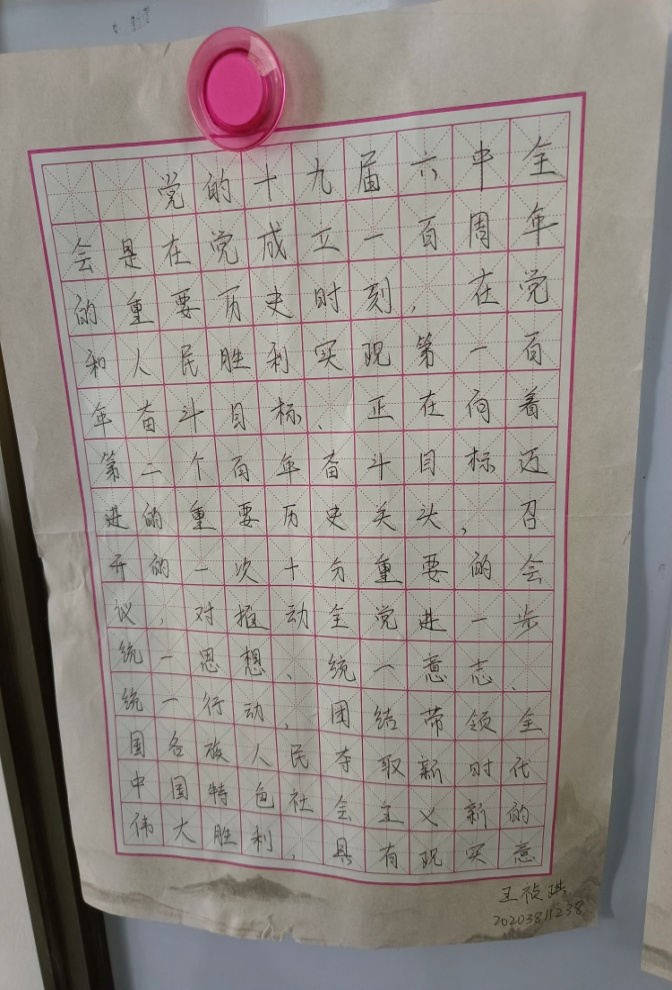 党的十九届六中全
会是在党成立一百周年
的重要历史时刻，在党
和人民胜利实现第一百
年奋斗目标、正在向着
第二个百年奋斗目标迈
进的重要历史关头，召
开的一次十分重要的会
议，对推动全党进一步
统一思想、统一意志、
统一行动，团结带领全
国各族人民夺取新时代
中国特色社会主义新的
伟大胜利，具有现实意
王祯琪
20203811238